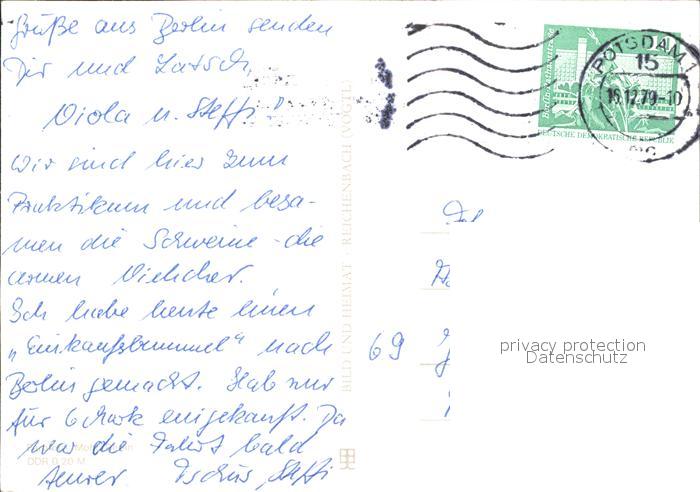 Grüße aus Berlin senden
Dir und Latsch,
Viola u. Steffi!
Wir sind hier zum
Praktikum und besa-
men die Schweine - die
armen Viehcher.
Ich habe heute einen
„Einkaufsbummel“ nach
Berlin gemacht. Hab nur
für 6 Mark eingekauft. Da
war die Fahrt bald
teurer. Tschüs, Steffi
DDR 0,20 M
BILD UND HEIMAT · REICHENBACH (VOGTL)
POTSDAM 1
15
19.12.79-10
DEUTSCHE DEMOKRATISCHE REPUBLIK
69
privacy protection
Datenschutz